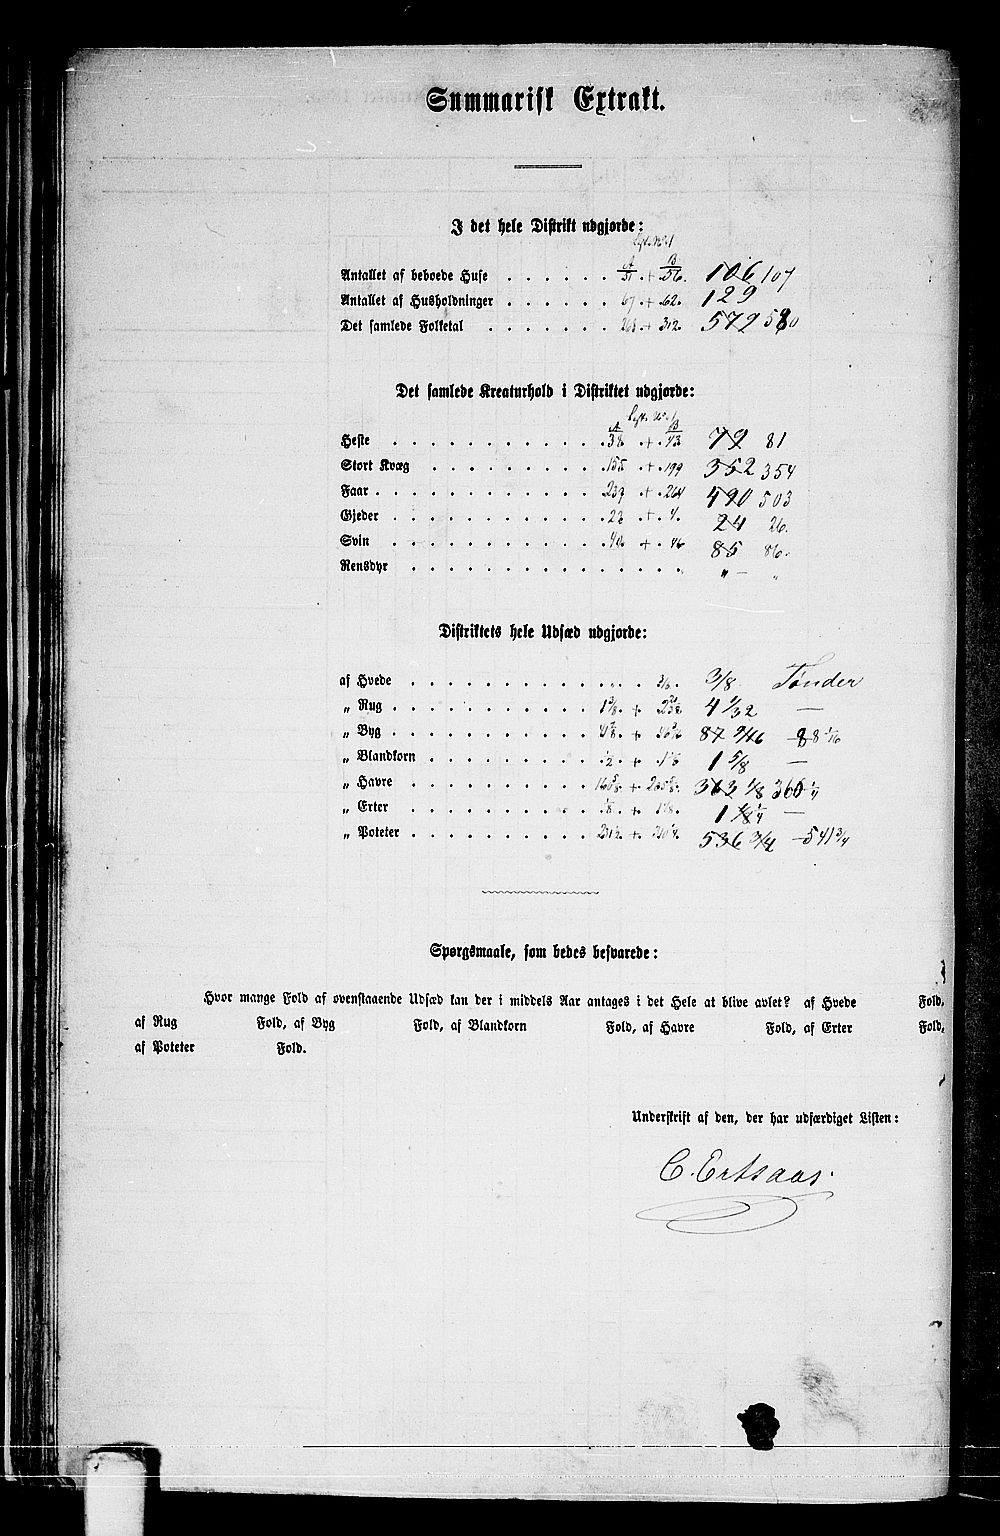 Summarisk Extrakt.
I det hele Distrikt udgjorde:
A B
Antallet af beboede Huse 51 + 56. 106 107
Antallet af Husholdninger 67 + 62. 129
Det samlede Folketal 268 + 312. 579 580
Det samlede Kreaturhold i Distriktet udgjorde:
A B
Heste 38 + 43 79 81
Stort Kvæg 155 + 199 352 354
Faar 239 + 264 490 503
Gjeder 22 + 4. 24 26.
Svin 40 + 46 85 86.
Rensdyr „ — „
Distriktets hele Udsæd udgjorde:
af Hvede 3/8. 3/8 Tønder
„ Rug 4 1/32 —
„ Byg 87 9/16 88 1/16
„ Blandkorn 1 5/8 —
„ Havre 363 1/8
„ Erter —
„ Poteter 536 3/4 — 541 3/4
Spørgsmaale, som bedes besvarede:
Hvor mange Fold af ovenstaaende Udsæd kan der i middels Aar antages i det Hele at blive avlet? af Hvede Fold,
af Rug Fold, af Byg Fold, af Blandkorn Fold, af Havre Fold, af Erter Fold,
af Poteter Fold.
Underskrift af den, der har udfærdiget Listen:
C. Ertsaas.